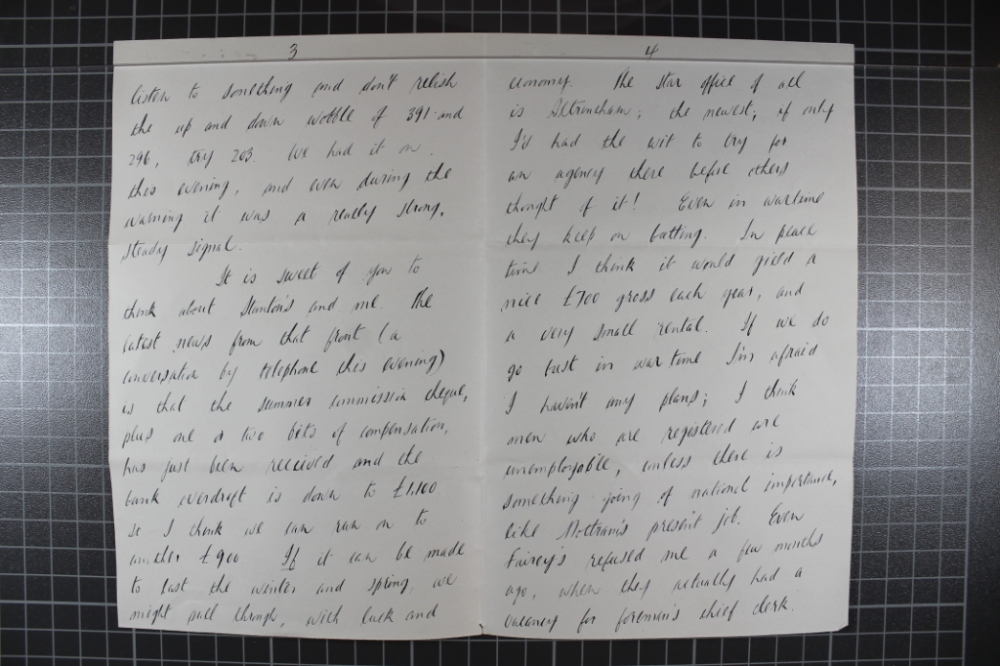 3
listen to something and don't relish
the up and down wobble of 391 and
296, try 203. We had it on
this evening, and even during the
warning it was a really strong,
steady signal.
It is sweet of you to
think about Stanton's and me. The
latest news from that front (a
conversation by telephone this evening)
is that the summer commission cheque,
plus one or two bits of compensation,
has just been received and the
bank overdraft is down to £1,100
so I think we can run on to
another £900 If it can be made
to last the winter and spring, we
might pull through, with luck and
4
economy. The star office of all
is Altrincham; the newest; if only
I'd had the wit to try for
an agency there before others
thought of it! Even in wartime
they keep on batting. In peace
time I think it would yield a
nice £700 gross each year, and
a very small rental. If we do
go bust in war time I'm afraid
I haven't any plans; I think
men who are registered are
unemployable, unless there is
something going of national importance,
like present job. Even
Fairey's refused me a few months
ago, when they actually had a
vacancy for foreman's chief clerk.